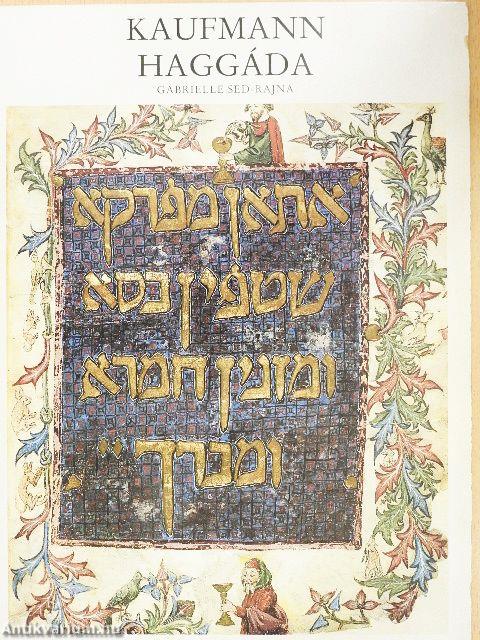 KAUFMANN
HAGGÁDA
GABRIELLE SED-RAJNA
אתאן מפרקא
שטפין כסא
ומזגין חמרא
ומברך יי
Antikvarium.hu